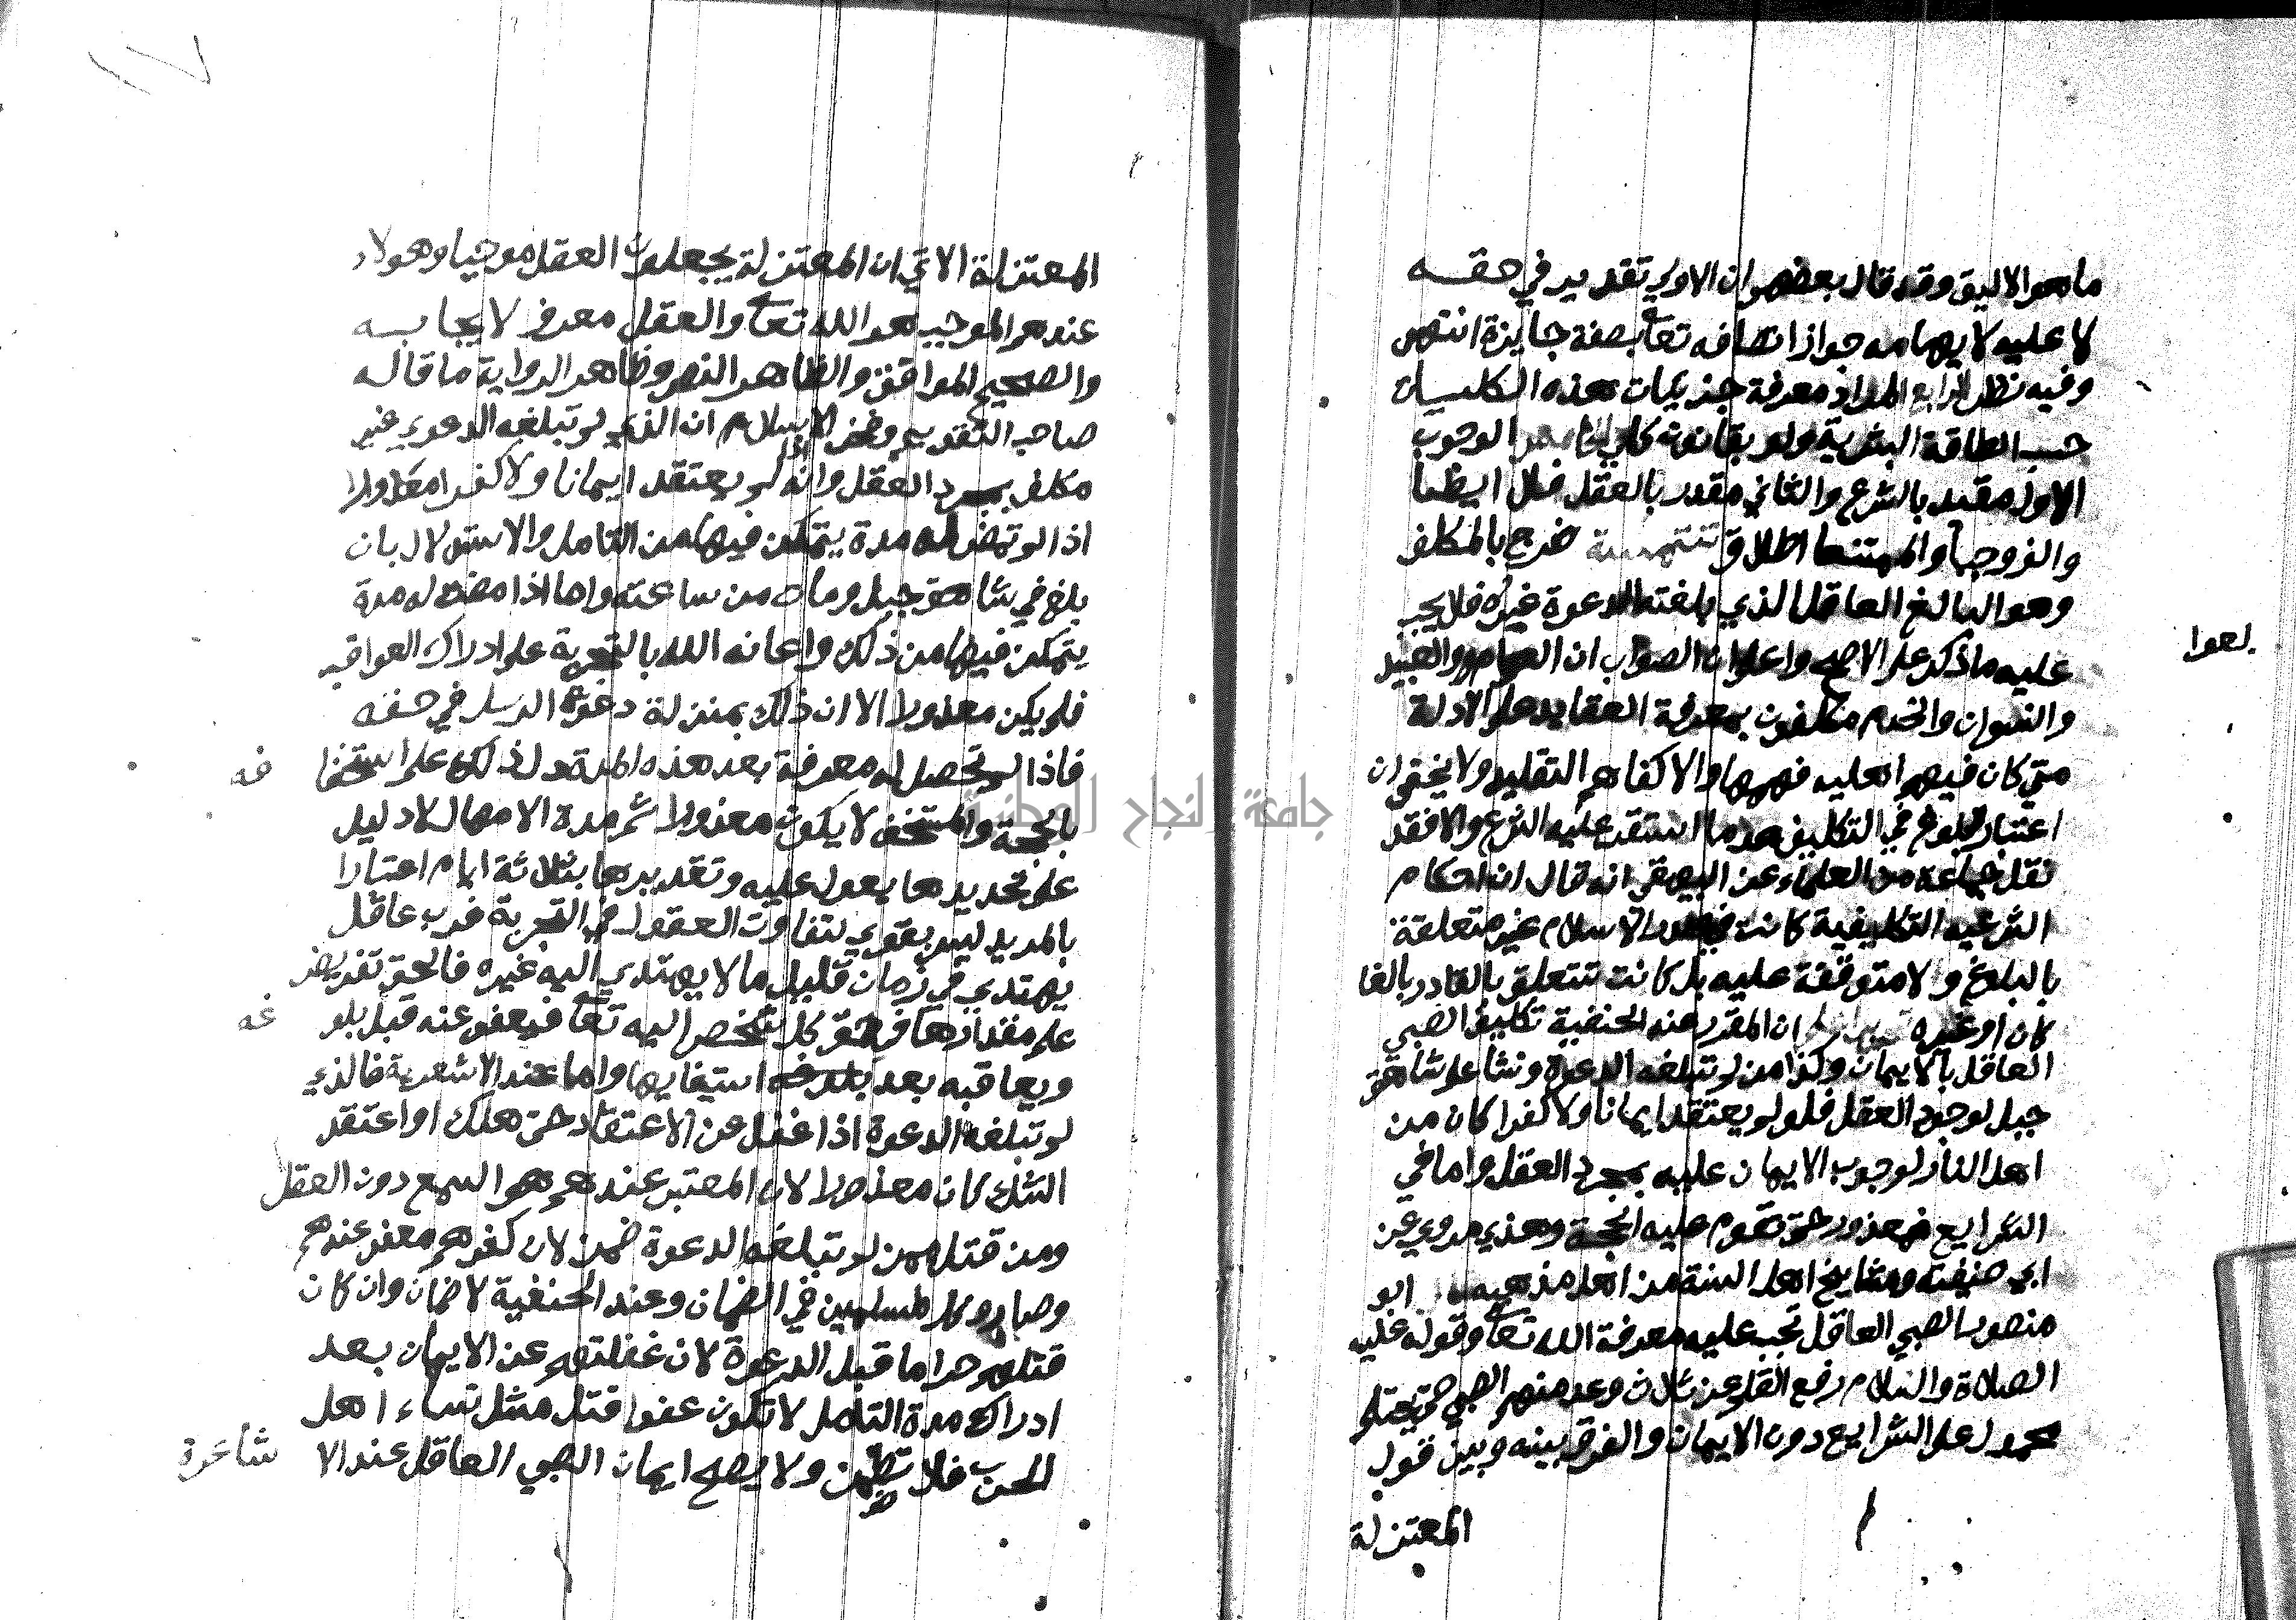 ما هو الاليق وقد قال بعضهم ان الاولي تقديره في حقه
لا عليه لايهامه جواز اتصافه تعا بصفة جايزة انتهى
وفيه نظر الرابع المراد معرفة جزييات هذه الكليات
حسب الطاقة البشرية ولو بقانون كلي الوجوب
الاول مقيد بالشرع والثاني مقدر بالعقل فلا ايطا
والزوجها والمهتنعا اطلاق تتمة خرج بالمكلف
وهو البالغ العاقل الذي بلغته الدعوة غيره فلا يجب
عليه ما ذكر على الاصح واعلم ان الصواب ان العوام والعبيد
والنسوان والخدم مكلفون بمعرفة العقايد على الادلة
متي كان فيهم اهليه فهمها والا كفاهم التقليد ولا يخفى ان
اعتبار البلوغ في التكليف هو ما استقر عليه الشرع والا فقد
نقل جماعة من العلماء عن البيهقي انه قال ان احكام
الشرعيه التكليفية كانت في صدر الاسلام غير متعلقة
بالبلوغ ولا متوقفة عليه بل كانت تتعلق بالقادر بالغا
كان او غيره ان المقرر عند الحنفية تكليف الصبي
العاقل بالايمان وكذا من لم تبلغه الدعوة ونشا على شاهق
جبل لوجود العقل فلو لم يعتقد ايمانا ولا كفرا كان من
اهل النار لوجوب الايمان عليه بمجرد العقل واما في
الشرايع فمعذور حتى تقوم عليه الحجة وهذي مروي عن
ابي حنيفة ومشايخ اهل السنة من اهل مذهبه ابو
منصور الصبي العاقل تجب عليه معرفة الله تعا وقوله عليه
الصلاة والسلام رفع القلم عن ثلاث وعد منهم الصبي حتى يحتلم
محمول على الشرايع دون الايمان والفرق بينه وبين قول
المعتزلة
لعوا
المعتزلة الاتي ان المعتزلة يجعلون العقل موجبا وهولاء
عندهم الموجب هو الله تعا والعقل معرف لايجابه
والصحيح الموافق والظاهر النص وظاهر الرواية ما قاله
صاحب التقديم وفخر الاسلام ان الذي لم تبلغه الدعوي غير
مكلف بمجرد العقل وانه لم يعتقد ايمانا ولا كفرا معذورا
اذا لم تمض له مدة يتمكن فيها من التامل والاستدلال بان
بلغ في شاهق جبل ومات من ساعته واما اذا مضت له مدة
يتمكن فيها من ذلك واعانه الله بالتجربة على ادراك العواقب
فلم يكن معذورا الا ان ذلك بمنزلة دعوة الرسل في حقه
فاذا لم تحصل له معرفة بعد هذه المدة دل ذلك على استخفا فه
بالحجة والمستخف لا يكون معذورا ثم مدة الامهال لا دليل
على تحديدها يعول عليه وتقديرها بثلاثة ايام اعتبارا
بالمريد ليس بقوي لتفاوت العقول في التجربة فرب عاقل
يهتدي في زمان قليل ما لا يهتدي اليه غيره فالحق تفويض
علم مقدارها في حق كل شخص اليه تعا فيعفو عنه قبل بلو غه
ويعاقبه بعد استيفايها واما عند الاشعرية فالذي
لم تبلغه الدعوة اذا غفل عن الاعتقاد حتى هلك او اعتقد
الشرك كان معذورا لان المعتبر عندهم هو السمع دون العقل
ومن قتل ممن لم تبلغه الدعوة ضمن لان كفرهم معفو عندهم
وصاروا كالمسلمين في الضمان وعند الحنفية لا ضمان وان كان
قتلهم حراما قبل الدعوة لان غفلتهم عن الايمان بعد
ادراك مدة التامل لا تكون عفوا فقتل مثل نساء اهل
الحرب فلا تضمن ولا يصح ايمان الصبي العاقل عند الا شاعرة
جامعة النجاح الوطنية